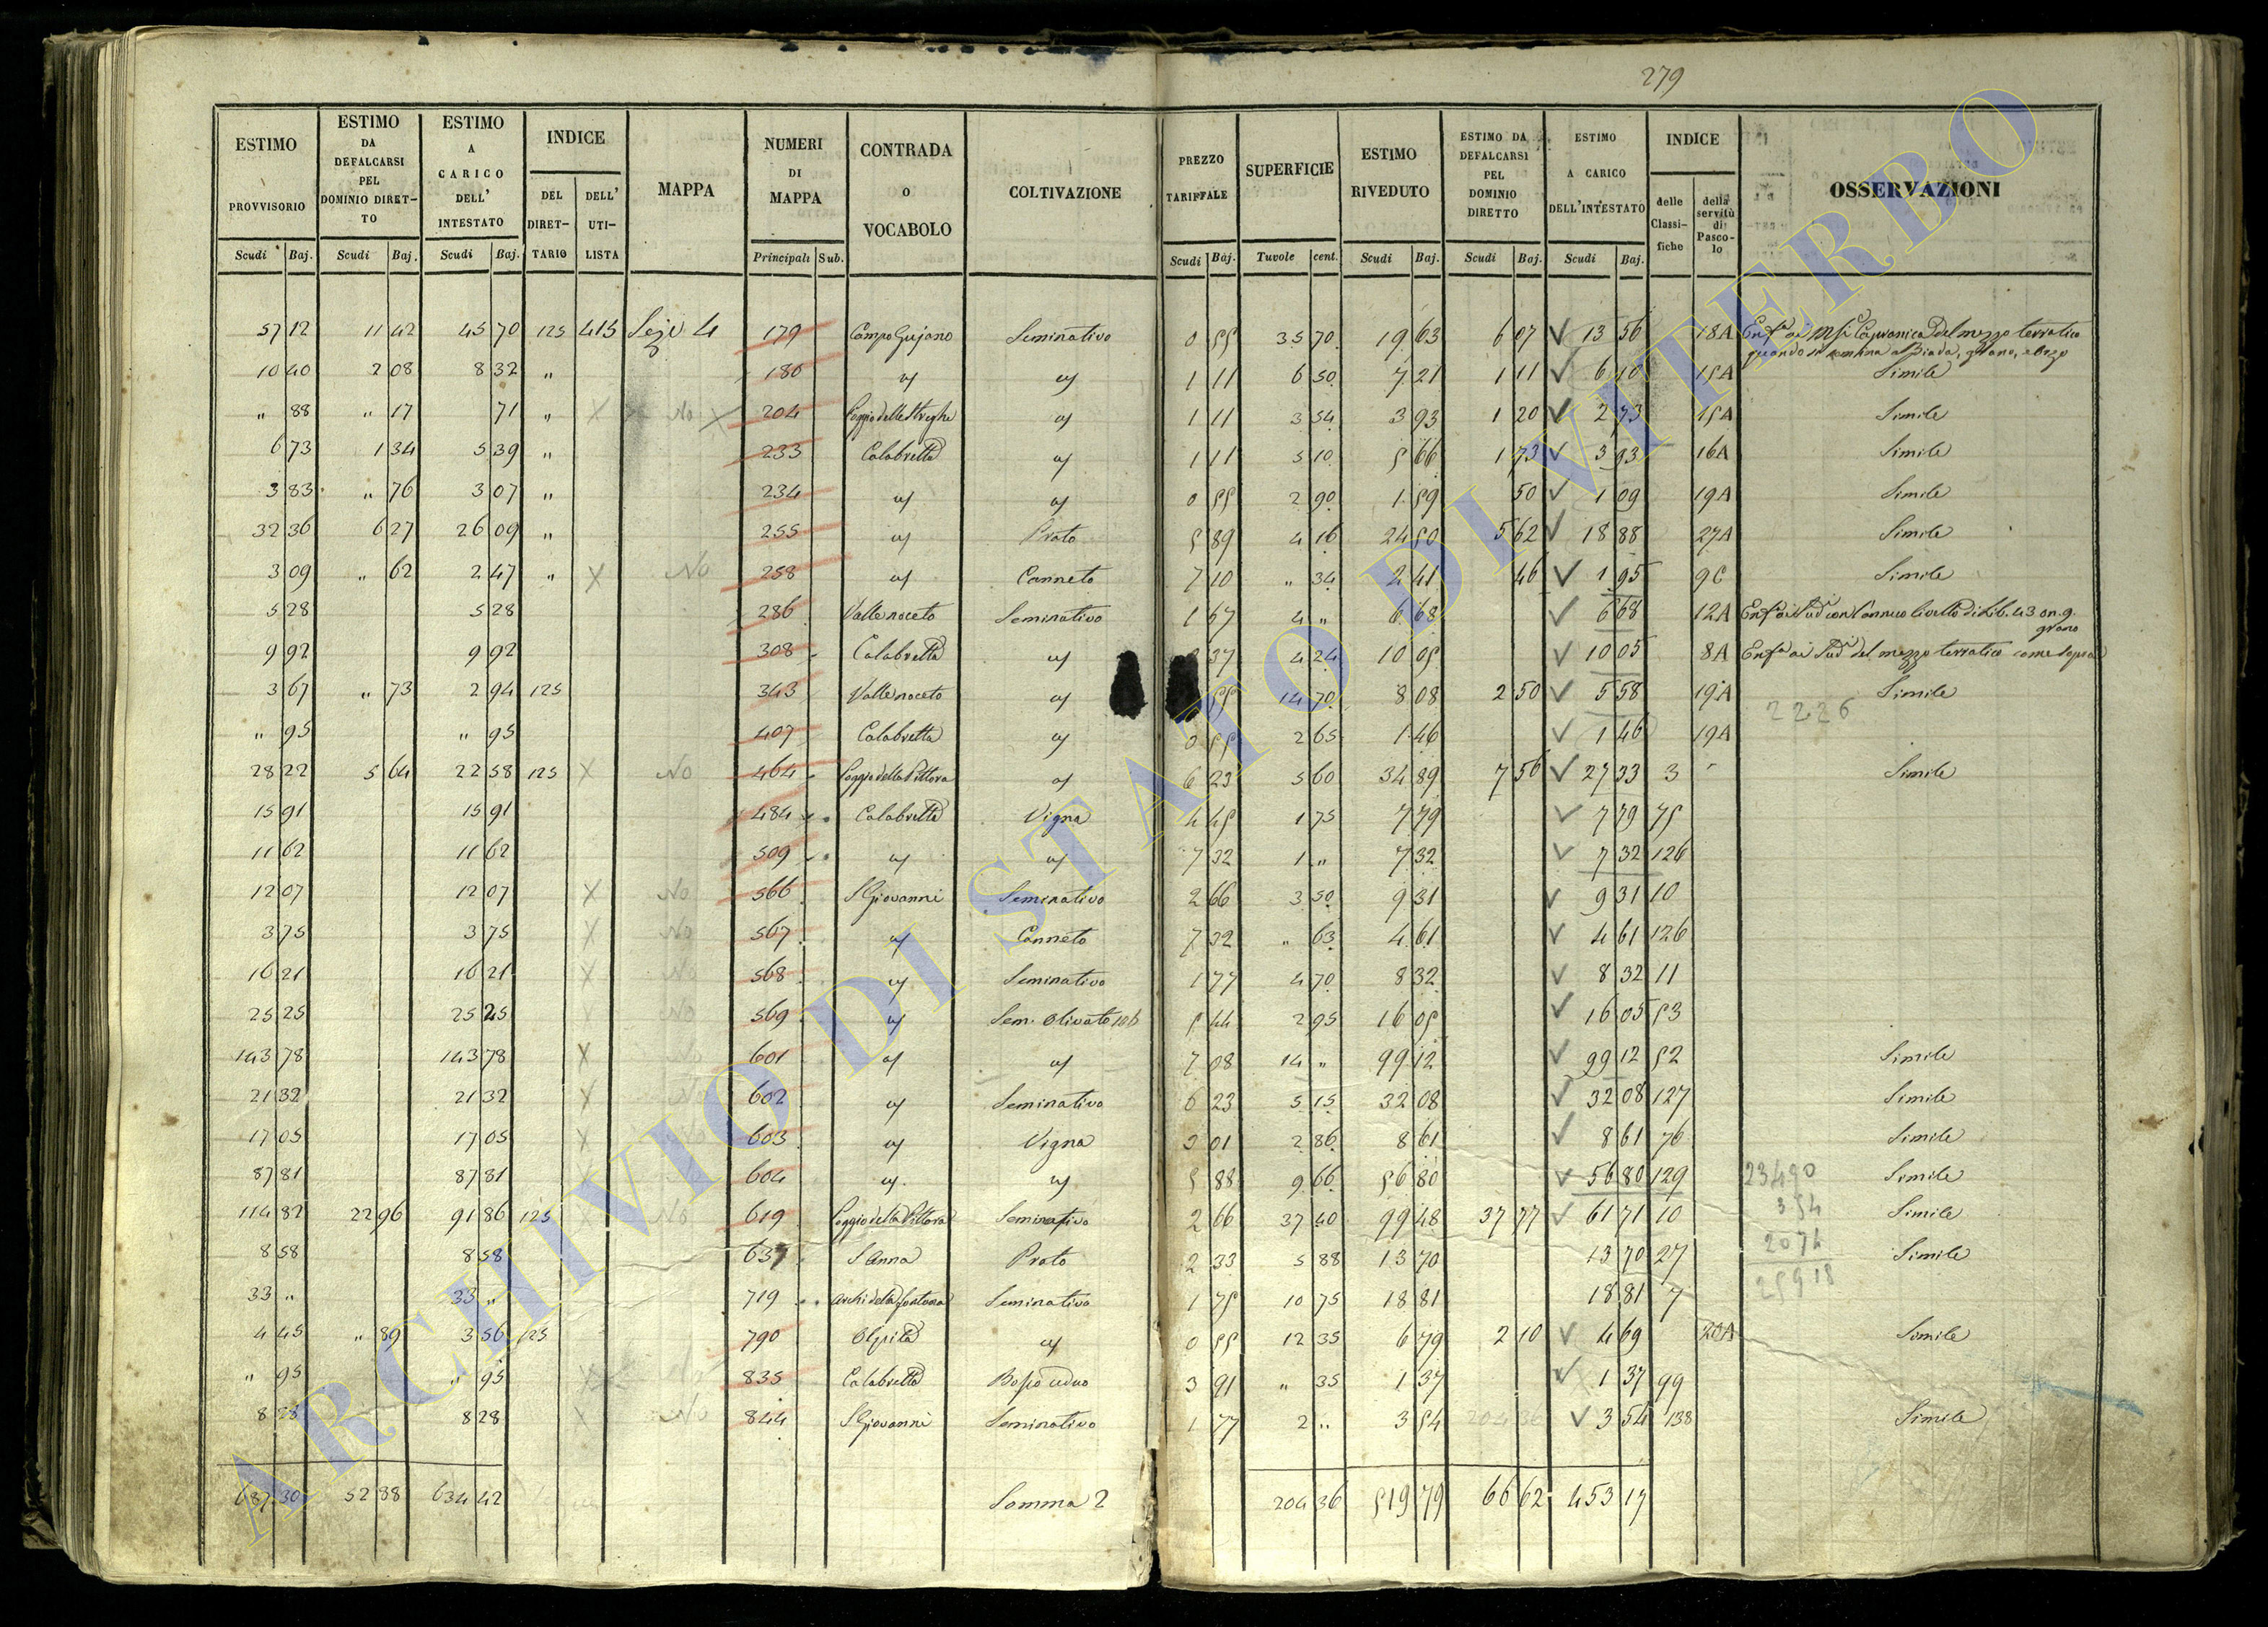 279
ESTIMO PROVVISORIO Scudi Baj. | ESTIMO DA DEFALCARSI PEL DOMINIO DIRET-TO Scudi Baj. | ESTIMO A CARICO DELL' INTESTATO Scudi Baj. | INDICE DEL DIRET-TARIO DELL' UTI-LISTA | MAPPA | NUMERI DI MAPPA Principali Sub. | CONTRADA o VOCABOLO | COLTIVAZIONE | PREZZO TARIFFALE Scudi Baj. | SUPERFICIE Tavole cent. | ESTIMO RIVEDUTO Scudi Baj. | ESTIMO DA DEFALCARSI PEL DOMINIO DIRETTO Scudi Baj. | ESTIMO A CARICO DELL'INTESTATO Scudi Baj. | INDICE delle Classi-fiche della servitù di Pasco-lo | OSSERVAZIONI
57 12 11 42 45 70 125 415 Sez. 4 179 Campo Gujano Seminativo 0 55 35 70 19 63 6 07 V 13 56 18A Capranica del mezzo terratico
quando si semina a Biada, grano,
10 40 2 08 8 32 " 180 1 11 6 50 7 21 1 11 V 6 10 15A Simile
" 88 " 17 71 " X No X 204 Poggio delle Streghe 1 11 3 54 3 93 1 20 V 2 73 15A Simile
6 73 1 34 5 39 " 233 Calabretta 1 11 5 10 5 66 1 73 V 3 93 16A Simile
3 83 " 76 3 07 " 234 0 55 2 90 1 59 50 V 1 09 19A Simile
32 36 6 27 26 09 " 255 Prato 5 89 4 16 24 50 5 62 V 18 88 27A Simile
3 09 " 62 2 47 " X No 258 Canneto 7 10 " 34 2 41 46 V 1 95 9C Simile
5 28 5 28 286 Valle noceto Seminativo 1 67 4 " 6 68 V 6 68 12A con l'annuo livello di Lib. 43 on. 9
grano
9 92 9 92 308 Calabretta 37 4 24 10 05 V 10 05 8A del mezzo terratico come sopra
3 67 " 73 2 94 125 343 Valle noceto 55 14 70 8 08 2 50 V 5 58 19A Simile
2226
" 95 " 95 407 Calabretta 0 55 2 65 1 46 V 1 46 19A
28 22 5 64 22 58 125 X No 464 Poggio della Pittora 6 23 5 60 34 89 7 56 V 27 33 3 Simile
15 91 15 91 484 Calabretta Vigna 4 45 1 75 7 79 V 7 79 75
11 62 11 62 509 7 32 1 " 7 32 V 7 32 126
12 07 12 07 X No 566 S Giovanni Seminativo 2 66 3 50 9 31 V 9 31 10
3 75 3 75 X No 567 Canneto 7 32 " 63 4 61 V 4 61 126
16 21 16 21 X No 568 Seminativo 1 77 4 70 8 32 V 8 32 11
25 25 25 25 X No 569 Sem. Olivato 5 44 2 95 16 05 V 16 05 53
143 78 143 78 X No 601 7 08 14 " 99 12 V 99 12 52 Simile
21 32 21 32 X No 602 Seminativo 6 23 5 15 32 08 V 32 08 127 Simile
17 05 17 05 X No 603 Vigna 3 01 2 86 8 61 V 8 61 76 Simile
87 81 87 81 604 5 88 9 66 56 80 V 56 80 129 23490 Simile
114 82 22 96 91 86 125 X No 619 Poggio della Pittora Seminativo 2 66 37 40 99 48 37 77 V 61 71 10 354 Simile
8 58 8 58 637 S Anna Prato 2 33 5 88 13 70 13 70 27 2074 Simile
33 " 33 " 719 Archi della fontana Seminativo 1 75 10 75 18 81 18 81 7 25918
4 45 " 89 3 56 125 790 0 55 12 35 6 79 2 10 V 4 69 20A Simile
" 95 " 95 X No 835 Calabretta Bosco ceduo 3 91 " 35 1 37 V 1 37 99
8 28 8 28 X No 844 S Giovanni Seminativo 1 77 2 " 3 54 204 36 V 3 54 138 Simile
687 30 52 88 634 42 Somma 2 204 36 519 79 66 62 453 17
ARCHIVIO DI STATO DI VITERBO